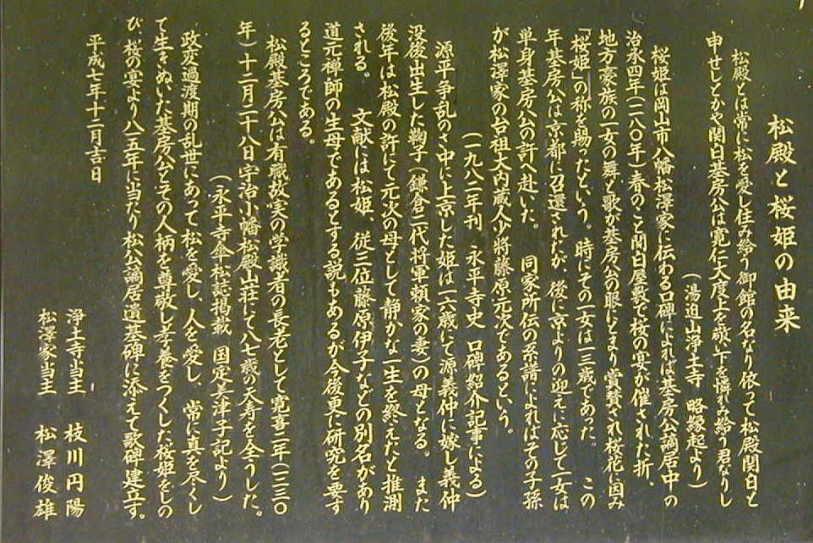 松殿と桜姫の由来
松殿とは常に松を愛し住み給う御館の名なり依って松殿関白と
申せしとかや関白基房公は寛仁大度上を敬い下を憐れみ給う君なりし
（湯迫山浄土寺 略縁起より）
桜姫は岡山市八幡松澤家に伝わる口碑によれば基房公謫居中の
治永四年（一一八〇年）春のこと関白屋敷で桜の宴が催された折、
地方豪族の一女の舞と歌が基房公の眼にとまり賞賛され桜花に因み
「桜姫」の称を賜ったという。 時にその一女は一三歳であった。 この
年基房公は京都に召還されたが、後に京よりの迎えに応じて一女は
単身基房公の許へ赴いた。 同家所伝の系譜によればその子孫
が松澤家の台祖大内蔵人少将藤原元次であるという。
（一九八二年刊 永平寺史 口碑紹介記事による）
源平争乱のさ中に上京した姫は一六歳にて源義仲に嫁し義仲
没後出生した鞠子（鎌倉二代将軍頼家の妻）の母となる。 また
後年は松殿の許にて元次の母として静かな一生を終えたと推測
される。 文献には松姫、従三位藤原伊子などの別名があり
道元禅師の生母であるとする説もあるが今後更に研究を要す
るところである。
松殿基房公は有職故実の学識者の長老として寛喜二年（一二三〇
年）十二月二十八日宇治小幡松殿山荘にて八七歳の天寿を全うした。
（永平寺傘松誌掲載 国定美津子記より）
政変過渡期の乱世にあって松を愛し、人を愛し、常に真を尽くし
て生きぬいた基房公とその人柄を尊敬し孝養をつくした桜姫をしの
び桜の宴より八一五年に当たり松公謫居之遺墓碑に添えて歌碑建立す。
平成七年十二月吉日
浄土寺当主 枝川円陽
松澤家当主 松澤俊雄